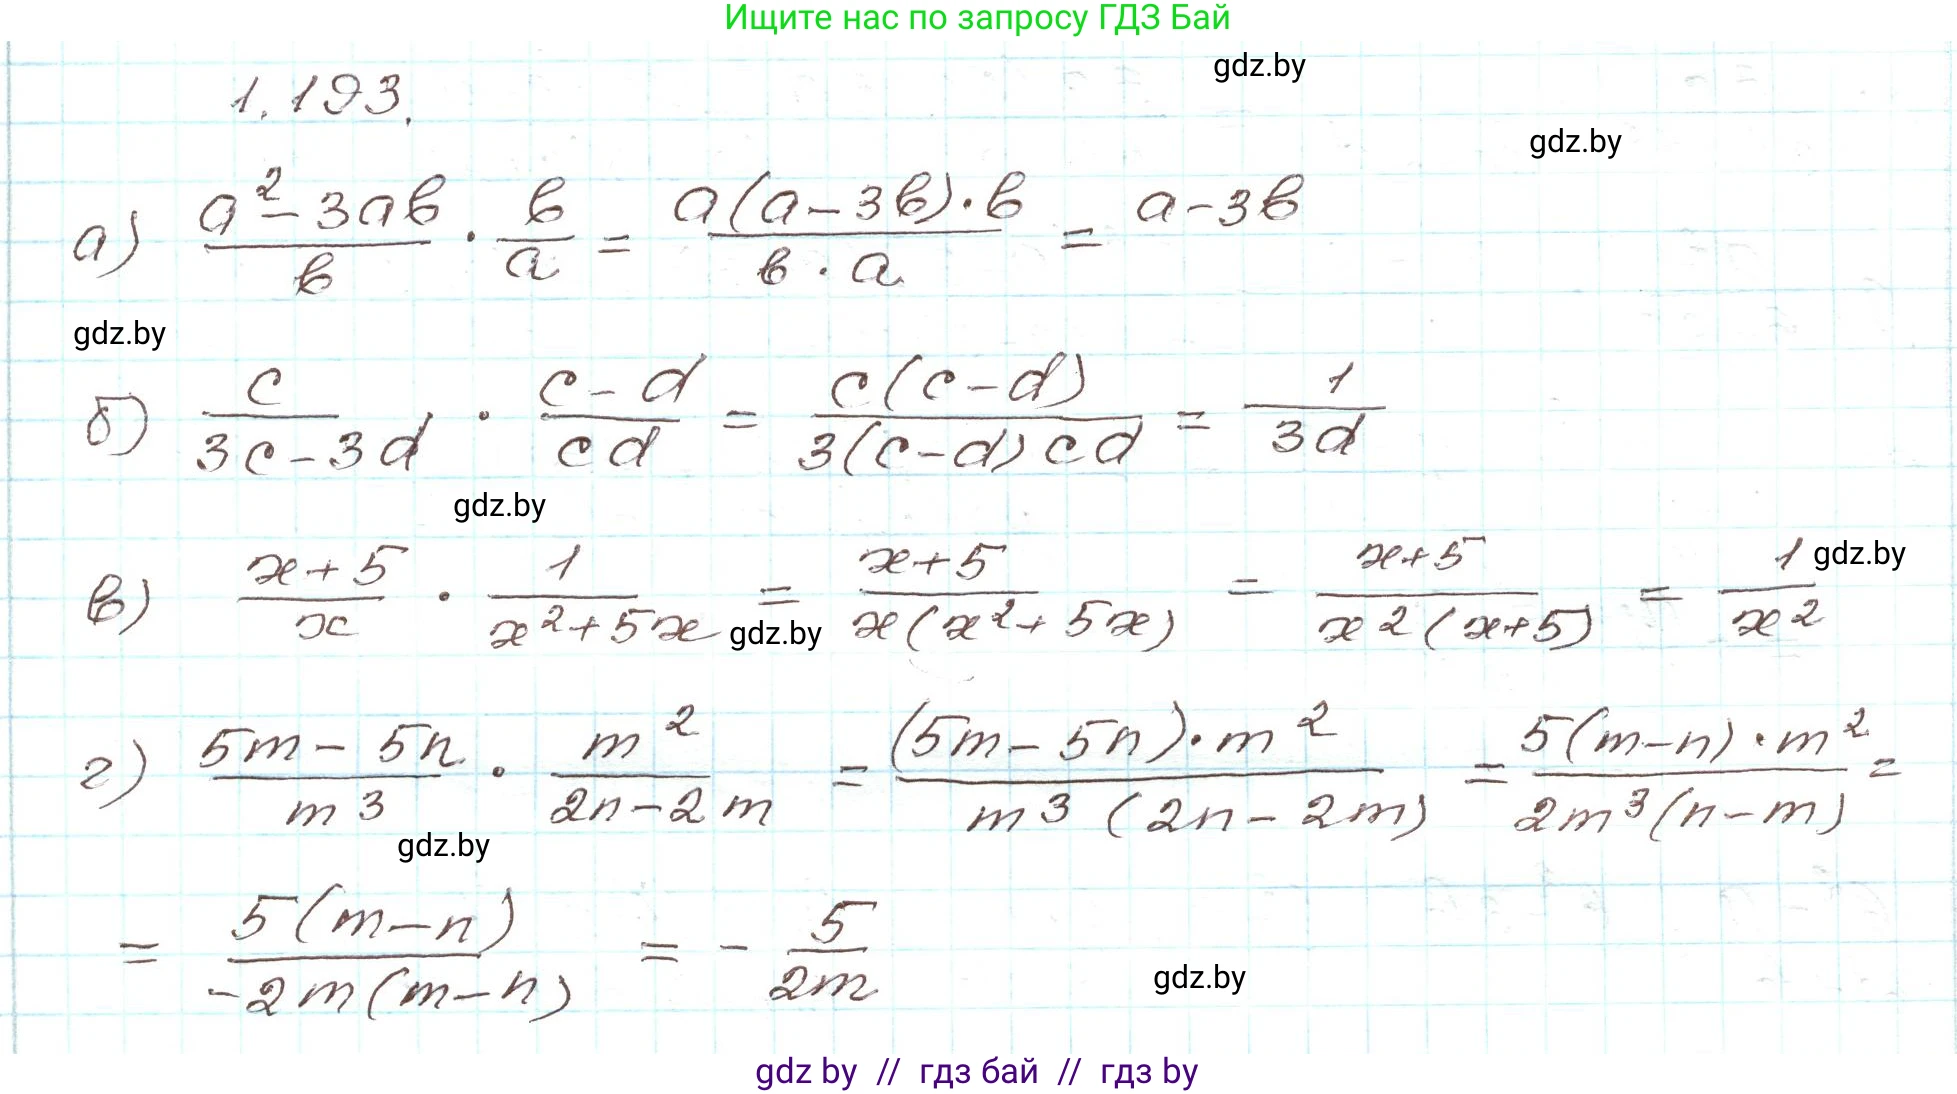 Ищите нас по запросу ГДЗ Бай
gdz.by
1.193.
gdz.by
а) \frac{a^2-3ab}{b} · \frac{b}{a} = \frac{a(a-3b)·b}{b·a} = a-3b
gdz.by
б) \frac{c}{3c-3d} · \frac{c-d}{cd} = \frac{c(c-d)}{3(c-d)cd} = \frac{1}{3d}
gdz.by
в) \frac{x+5}{x} · \frac{1}{x^2+5x} = \frac{x+5}{x(x^2+5x)} = \frac{x+5}{x^2(x+5)} = \frac{1}{x^2}
gdz.by
gdz.by
г) \frac{5m-5n}{m^3} · \frac{m^2}{2n-2m} = \frac{(5m-5n)·m^2}{m^3(2n-2m)} = \frac{5(m-n)·m^2}{2m^3(n-m)} =
gdz.by
= \frac{5(m-n)}{-2m(m-n)} = -\frac{5}{2m}
gdz.by
gdz by // гдз бай // гдз by